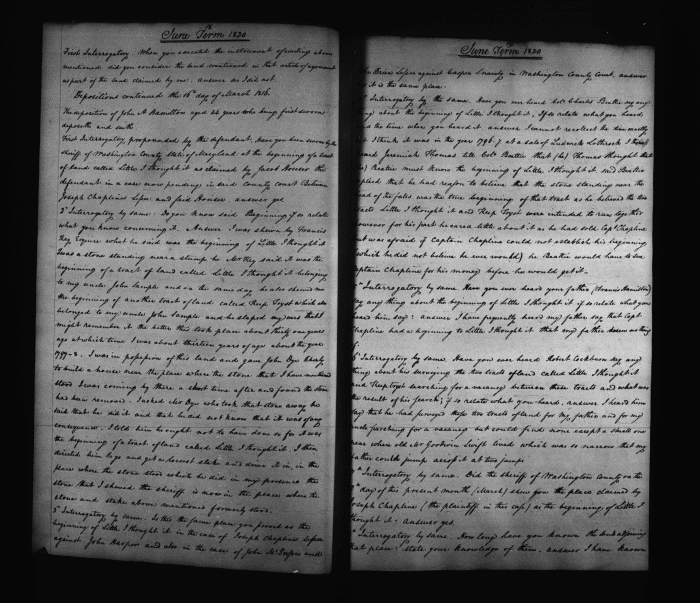 June Term 1820
First Interrogatory. When you executed the instrument of writing above
mentioned did you consider the land mentioned in that article of agreement
as part of the land claimed by me. answer no I did not.
Depositions continued the 16th day of March 1816.
The deposition of John A Hamilton aged 44 years who being first sworn
deposeth and saith
First Interrogatory propounded by the defendant. Have you been sworn by the
sheriff of Washington County state of Maryland at the beginning of a tract
of land called Little I thought it as claimed by Jacob
defendant in a case now pending in said county court Between
Joseph Chaplines Lessee and said answer yes
2d Interrogatory by same. Do you know said Beginning if so relate
what you know concerning it. Answer I was shewn by Francis
Key Esquire what he said was the beginning of Little I thought it
was a stone standing near a stump he Mr Key said it was the
beginning of a tract of land called Little I thought it belonging
to my uncle John Sample and on the same day he also showed me
the beginning of another tract of land called Keep Tryst which also
belonged to my uncle John Sample and he slaped my ears that I
might remember it the better this took place about thirty one years
ago at which time I was about thirteen years of age about the year
1797-8. I was in possession of this land and gave John Dye liberty
to build a house near the place where the stone that I have mentioned
stood I was coming by there a short time after and found the stone
had been removed. I asked Mr Dye who took that stone away he
said that he did it and that he did not know that it was of any
consequence. I told him he ought not to have done so for it was
the beginning of a tract of land called Little I thought it. I then
directed him to go and get a locust stake and drive it in, in the
place where the stone stood which he did in my presence the
stone that I showed the sheriff is now in the place where the
stone and stake above mentioned formerly stood.
3d Interrogatory by same. Is this the same plan you proved as the
beginning of Little I thought it in the case of Joseph Chaplines Lessee
against John Harper and also in the case of John
June Term 1820
Lessee against Casper in Washington County Court. answer
it is the same place.
Interrogatory by the same. Have you ever heard Col. Charles Beatty say any
thing about the beginning of Little I thought it. If so relate what you heard
and the time when you heard it answer I cannot recollect the time exactly
but I think it was in the year 1796.7 at a sale of Ludwick I think
heard Jeremiah Thomas tell Col. Beatty that (he) Thomas thought that
(he) Beatty must know the beginning of Little I thought it said Beatty
replied that he had reason to believe that the stone standing near the
head of the was the true beginning of that tract as he derived the two
tracts Little I thought it and Keep Tryst were intended to run together
however for his part he cared little about it as he had sold Capt Chapline
but was afraid if Captain Chapline could not establish his beginning
(which he did not believe he ever would) he Beatty would have to sue
Captain Chapline for his money before he would get it.
5th Interrogatory by same. Have you ever heard your father (Francis Hamilton)
say any thing about the beginning of Little I thought it if so relate what you
heard him say: answer I have frequently heard my father say that Capt
Chapline had a beginning to Little I thought it that my father knew nothing
of.
6th Interrogatory by same. Have you ever heard Robert Cockburn say any
thing about his surveying the two tracts of land called Little I thought it
and Keeptryst searching for a vacancy between these tracts and what was
the result of his search; if so relate what you heard. answer I heard him
say that he had surveyed these two tracts of land for my father and for my
uncle searching for a vacancy but could find none except a small one
near where old Mr Godwin Swift lived which was so narrow that my
father could jump across it at two jumps
7th Interrogatory by same. Did the sheriff of Washington County on the
day of this present month (March) shew you the place claimed by
Joseph Chapline (the plaintiff in this case) as the beginning of Little I
thought it: answer yes
8th Interrogatory by same. How long have you known the lands adjoining
that place? State your knowledge of them. answer I have known